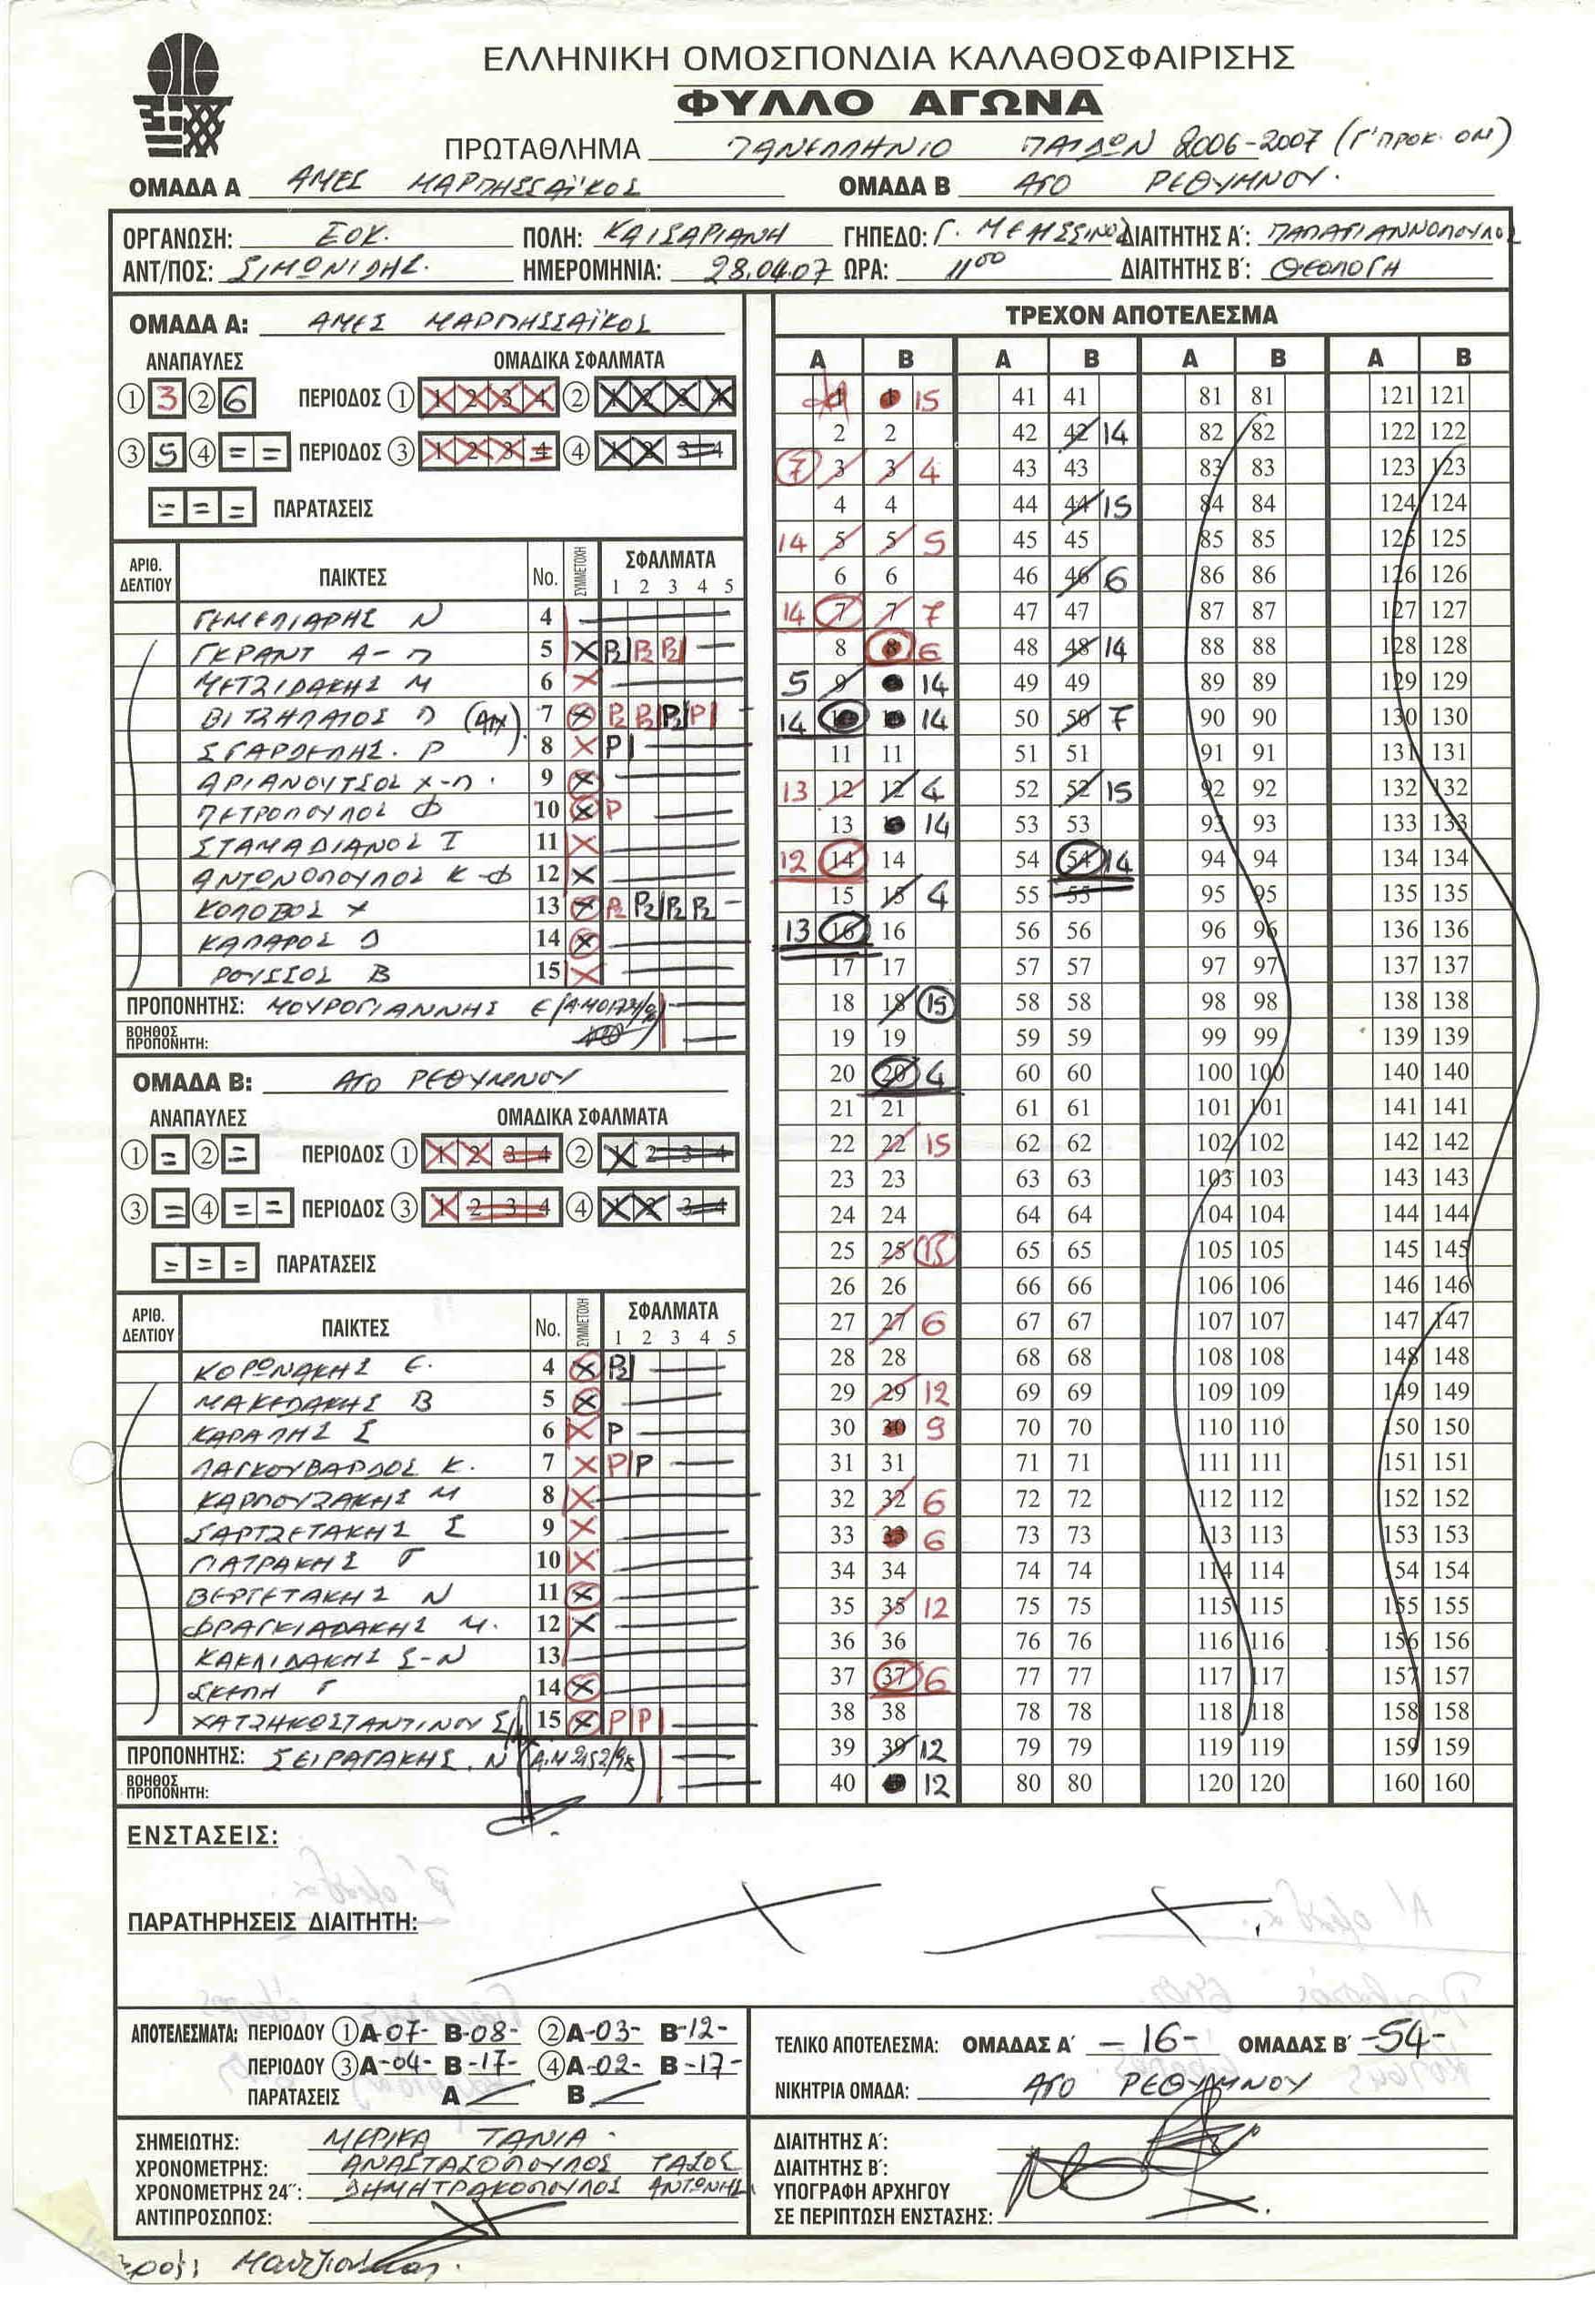 ΕΛΛΗΝΙΚΗ ΟΜΟΣΠΟΝΔΙΑ ΚΑΛΑΘΟΣΦΑΙΡΙΣΗΣ
ΦΥΛΛΟ ΑΓΩΝΑ
ΠΡΩΤΑΘΛΗΜΑ ΠΑΝΕΛΛΗΝΙΟ ΠΑΙΔΩΝ 2006-2007 (Γ' ΠΡΟΚ. ΟΜ)
ΟΜΑΔΑ Α ΑΜΕΣ ΜΑΡΠΗΣΣΑΪΚΟΣ ΟΜΑΔΑ Β ΑΓΟ ΡΕΘΥΜΝΟΥ.
ΟΡΓΑΝΩΣΗ: ΕΟΚ. ΠΟΛΗ: ΚΑΙΣΑΡΙΑΝΗ ΓΗΠΕΔΟ: ΔΙΑΙΤΗΤΗΣ Α΄: ΠΑΠΑΓΙΑΝΝΟΠΟΥΛΟΣ
ΑΝΤ/ΠΟΣ: ΣΙΜΩΝΙΔΗΣ. ΗΜΕΡΟΜΗΝΙΑ: 28.04.07 ΩΡΑ: 11 00 ΔΙΑΙΤΗΤΗΣ Β΄: ΘΕΟΛΟΓΗ
ΟΜΑΔΑ Α: ΑΜΕΣ ΜΑΡΠΗΣΣΑΪΚΟΣ
ΑΝΑΠΑΥΛΕΣ ΟΜΑΔΙΚΑ ΣΦΑΛΜΑΤΑ
1 3 2 6 ΠΕΡΙΟΔΟΣ 1 1 2 3 4 2 1 2 3 4
3 5 4 = = ΠΕΡΙΟΔΟΣ 3 1 2 3 4 4 1 2 3 4
= = = ΠΑΡΑΤΑΣΕΙΣ
ΑΡΙΘ. ΔΕΛΤΙΟΥ ΠΑΙΚΤΕΣ Νο. ΣΥΜΜΕΤΟΧΗ ΣΦΑΛΜΑΤΑ
1 2 3 4 5
ΓΕΜΕΛΙΑΡΗΣ Ν 4
ΓΚΡΑΝΤ Α-Π 5 X P2 P2 P2
ΜΕΤΖΙΔΑΚΗΣ Μ 6 X
ΒΙΤΖΗΛΑΙΟΣ Π (ΑΡΧ) 7 X P2 P2 P2 P
8 X P
ΑΡΙΑΝΟΥΤΣΟΣ Χ-Π. 9 X
ΠΕΤΡΟΠΟΥΛΟΣ Φ 10 X P
ΣΤΑΜΑΔΙΑΝΟΣ Ι 11 X
ΑΝΤΩΝΟΠΟΥΛΟΣ Κ-Φ 12 X
ΚΟΛΟΒΟΣ Χ 13 X P2 P2 P2 P2
ΚΑΠΑΡΟΣ Δ 14 X
ΡΟΥΣΣΟΣ Β 15 X
ΠΡΟΠΟΝΗΤΗΣ: ΜΟΥΡΟΓΙΑΝΝΗΣ Ε
ΒΟΗΘΟΣ ΠΡΟΠΟΝΗΤΗ:
ΟΜΑΔΑ Β: ΑΓΟ ΡΕΘΥΜΝΟΥ
ΑΝΑΠΑΥΛΕΣ ΟΜΑΔΙΚΑ ΣΦΑΛΜΑΤΑ
1 = 2 = ΠΕΡΙΟΔΟΣ 1 1 2 3 4 2 1 2 3 4
3 = 4 = = ΠΕΡΙΟΔΟΣ 3 1 2 3 4 4 1 2 3 4
= = = ΠΑΡΑΤΑΣΕΙΣ
ΑΡΙΘ. ΔΕΛΤΙΟΥ ΠΑΙΚΤΕΣ Νο. ΣΥΜΜΕΤΟΧΗ ΣΦΑΛΜΑΤΑ
1 2 3 4 5
ΚΟΡΩΝΑΚΗΣ Ε. 4 X P2
ΜΑΚΕΔΑΚΗΣ Β 5 X
ΚΑΡΑΛΗΣ Σ 6 X P
ΛΑΓΚΟΥΒΑΡΔΟΣ Κ. 7 X P P
ΚΑΡΠΟΥΖΑΚΗΣ Μ 8 X
ΣΑΡΤΖΕΤΑΚΗΣ Σ 9 X
ΓΙΑΤΡΑΚΗΣ Γ 10 X
ΒΕΡΓΕΤΑΚΗΣ Ν 11 X
ΦΡΑΓΚΙΑΔΑΚΗΣ Μ. 12 X
ΚΑΚΛΙΔΑΚΗΣ Σ-Ν 13
ΣΚΕΠΗ Γ 14 X
ΧΑΤΖΗΚΩΣΤΑΝΤΙΝΟΥ Σ 15 X P P
ΠΡΟΠΟΝΗΤΗΣ: ΣΕΙΡΑΓΑΚΗΣ. Ν (Α.Μ 2152/98)
ΒΟΗΘΟΣ ΠΡΟΠΟΝΗΤΗ:
ΤΡΕΧΟΝ ΑΠΟΤΕΛΕΣΜΑ
Α Β Α Β Α Β Α Β
1 1 15 41 41 81 81 121 121
2 2 42 42 14 82 82 122 122
7 3 3 4 43 43 83 83 123 123
4 4 44 44 15 84 84 124 124
14 5 5 5 45 45 85 85 125 125
6 6 46 46 6 86 86 126 126
14 7 7 7 47 47 87 87 127 127
8 8 6 48 48 14 88 88 128 128
5 9 14 49 49 89 89 129 129
14 10 10 14 50 50 7 90 90 130 130
11 11 51 51 91 91 131 131
13 12 12 4 52 52 15 92 92 132 132
13 14 53 53 93 93 133 133
12 14 14 54 54 14 94 94 134 134
15 15 4 55 55 95 95 135 135
13 16 16 56 56 96 96 136 136
17 17 57 57 97 97 137 137
18 18 15 58 58 98 98 138 138
19 19 59 59 99 99 139 139
20 20 4 60 60 100 100 140 140
21 21 61 61 101 101 141 141
22 22 15 62 62 102 102 142 142
23 23 63 63 103 103 143 143
24 24 64 64 104 104 144 144
25 25 15 65 65 105 105 145 145
26 26 66 66 106 106 146 146
27 27 6 67 67 107 107 147 147
28 28 68 68 108 108 148 148
29 29 12 69 69 109 109 149 149
30 30 9 70 70 110 110 150 150
31 31 71 71 111 111 151 151
32 32 6 72 72 112 112 152 152
33 33 6 73 73 113 113 153 153
34 34 74 74 114 114 154 154
35 35 12 75 75 115 115 155 155
36 36 76 76 116 116 156 156
37 37 6 77 77 117 117 157 157
38 38 78 78 118 118 158 158
39 39 12 79 79 119 119 159 159
40 12 80 80 120 120 160 160
ΕΝΣΤΑΣΕΙΣ:
ΠΑΡΑΤΗΡΗΣΕΙΣ ΔΙΑΙΤΗΤΗ:
ΑΠΟΤΕΛΕΣΜΑΤΑ: ΠΕΡΙΟΔΟΥ 1 Α-07- Β-08- 2 Α-03- Β-12-
ΠΕΡΙΟΔΟΥ 3 Α-04- Β-17- 4 Α-02- Β-17-
ΠΑΡΑΤΑΣΕΙΣ Α Β
ΤΕΛΙΚΟ ΑΠΟΤΕΛΕΣΜΑ: ΟΜΑΔΑΣ Α΄ -16- ΟΜΑΔΑΣ Β΄ -54-
ΝΙΚΗΤΡΙΑ ΟΜΑΔΑ: ΑΓΟ ΡΕΘΥΜΝΟΥ
ΣΗΜΕΙΩΤΗΣ: ΜΕΡΙΚΑ ΤΑΝΙΑ.
ΧΡΟΝΟΜΕΤΡΗΣ: ΑΝΑΣΤΑΣΟΠΟΥΛΟΣ ΤΑΣΟΣ
ΧΡΟΝΟΜΕΤΡΗΣ 24": ΔΗΜΗΤΡΑΚΟΠΟΥΛΟΣ ΑΝΤΩΝΗΣ
ΑΝΤΙΠΡΟΣΩΠΟΣ:
ΔΙΑΙΤΗΤΗΣ Α΄:
ΔΙΑΙΤΗΤΗΣ Β΄:
ΥΠΟΓΡΑΦΗ ΑΡΧΗΓΟΥ
ΣΕ ΠΕΡΙΠΤΩΣΗ ΕΝΣΤΑΣΗΣ: